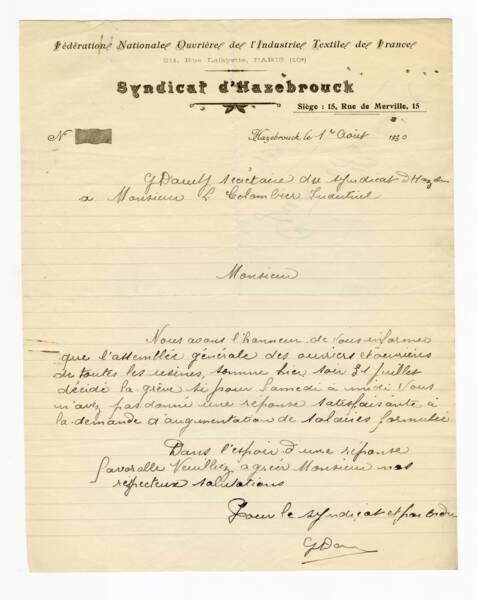 Fédération Nationale Ouvrière de l'Industrie Textile de France
211, Rue Lafayette, PARIS (10e)
Syndicat d'Hazebrouck
Siège : 15, Rue de Merville, 15
N°
Hazebrouck le 1er Août 1930
secrétaire du syndicat d'Hazeb
a Monsieur L Colombier Industriel
Monsieur
Nous avons l'honneur de vous informer
que l'assemblée générale des ouvriers et ouvrières
de toutes les usines, tennue hier soir 31 juillet
décidé la grève si pour Samedi à midi Vous
n'avez pas donné une réponse satisfaisante à
la demande d'augmentation de salaires formulée
Dans l'espoir d'une réponse
favorable Veuillez agréer Monsieur nos
respecteux salutations
Pour le syndicat et par ordre